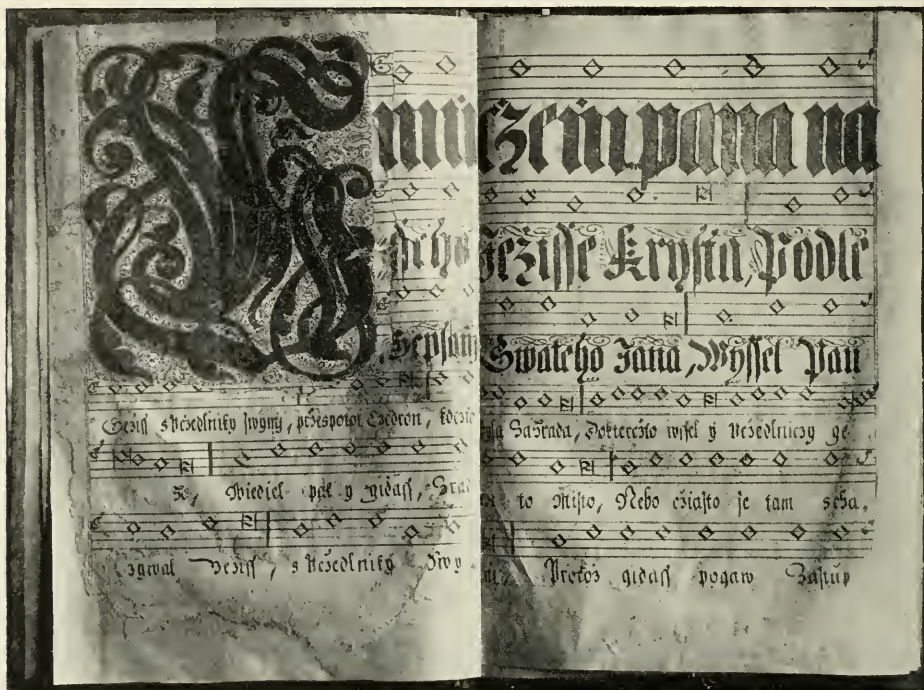 Umu czenij pana na
sseho Gežisse Krysta, Podle
Sepsani Swateho Jana, Wyssel Pan
Gežiss s učedlniky swymi, přes potok Cedron, kdežto byla Zahrada, Do kterežto wssel y učedlniczy ge
Wiediel pak y gidass, Zrad to Misto, Nebo cžiasto se tam scha,
Ježiss, s učedlniky Swy mi, Protož gidass pogaw Zastup